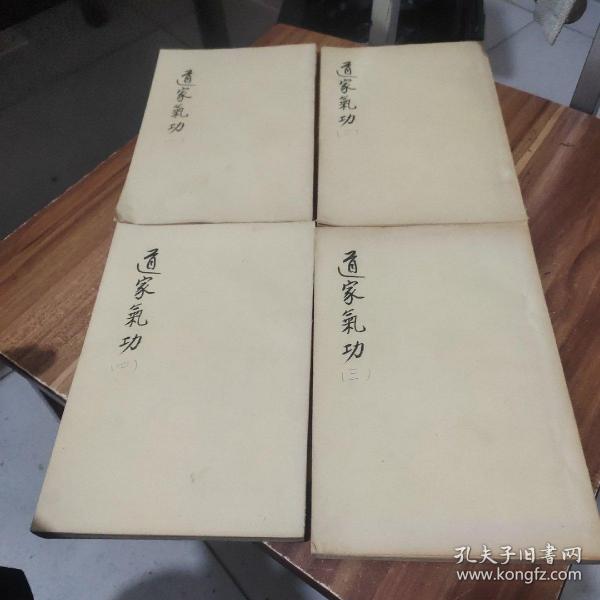 道家氣功
道家氣功
道家氣功
(四)
道家氣功
(三)
孔夫子旧書网
www.kongfz.com